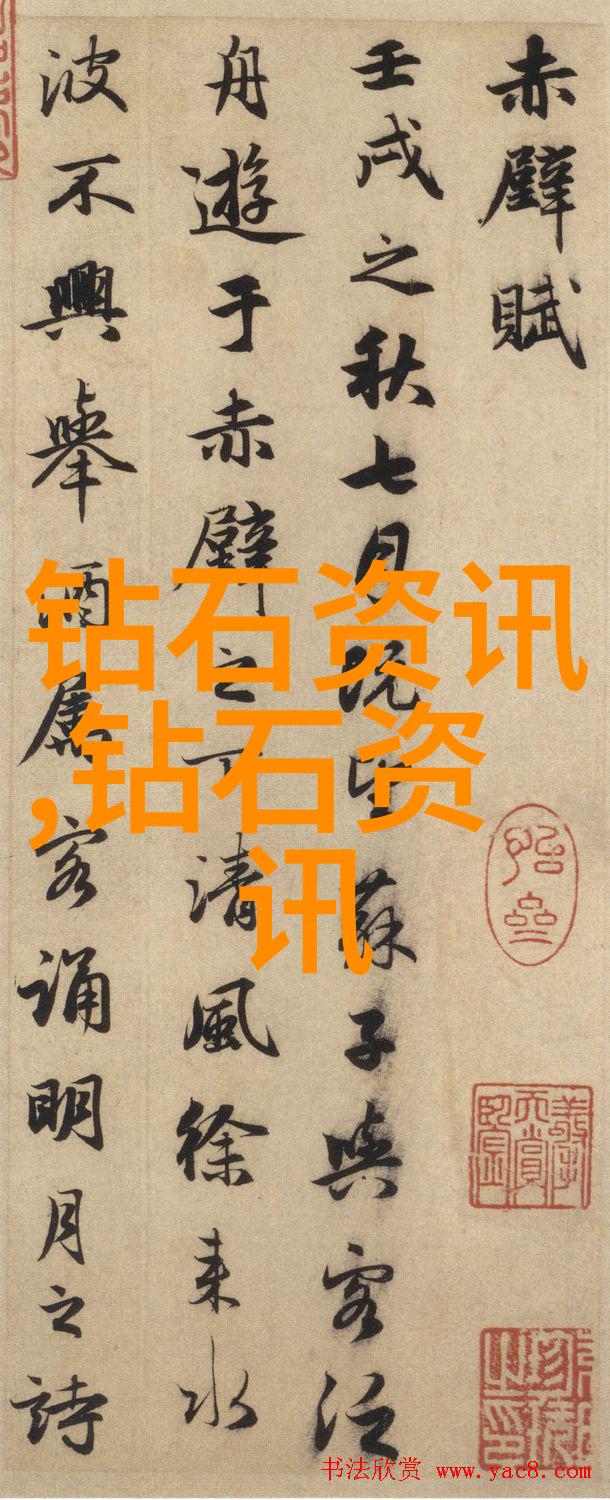 赤壁賦
壬戌之秋七月既望蘇子與客泛
舟遊于赤壁之下清風徐来水
波不興舉酒屬客誦明月之詩
钻石资讯
,钻石资
讯
书法欣赏 www.yac8.com